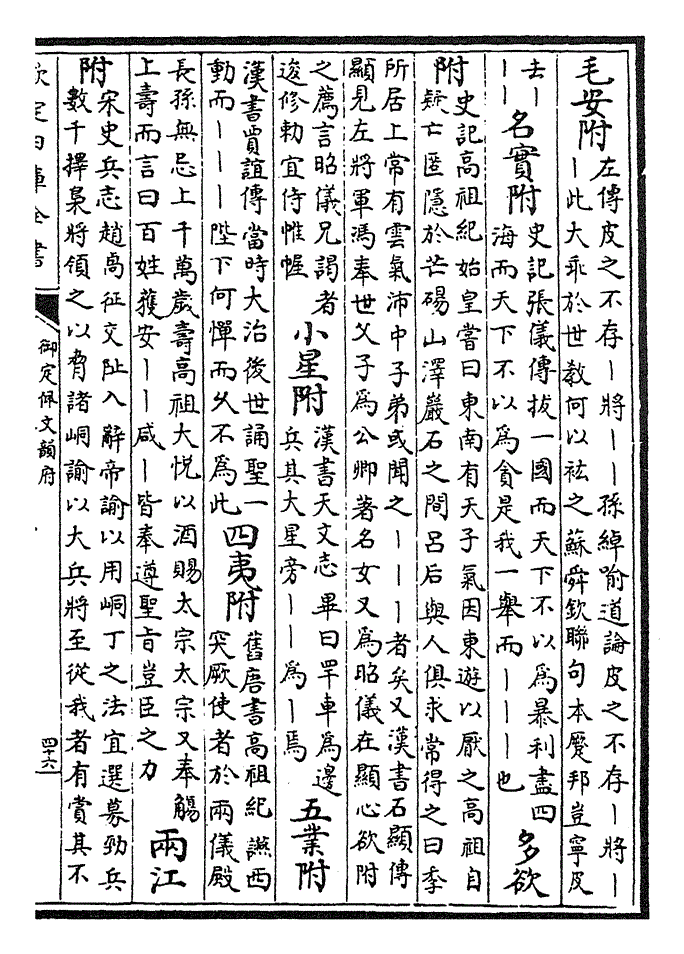 毛安附
左傳皮之不存丨將丨丨孫綽喻道論皮之不存丨將丨
丨此大乖於世教何以袪之蘇舜欽聯句本蹷邦豈寧皮
去丨
丨丨
名實附
史記張儀傳拔一國而天下不以為暴利盡四
海而天下不以為貪是我一舉而丨丨丨也
多欲
附
史記高祖紀始皇嘗曰東南有天子氣因東遊以厭之高祖自
疑亡匿隱於芒碭山澤巖石之間呂后與人俱求常得之曰季
所居上常有雲氣沛中子弟或聞之丨丨丨者矣又漢書石顯傳
顯見左將軍馮奉世父子為公卿著名女又為昭儀在顯心欲附
之薦言昭儀兄謁者
逡修勅宜侍帷幄
小星附
漢書天文志畢曰罕車為邊
兵其大星旁丨丨為丨焉
五業附
漢書賈誼傳當時大治後世誦聖一
動而丨丨丨陛下何憚而久不為此
四夷附
舊唐書高祖紀讌西
突厥使者於兩儀殿
長孫無忌上千萬歲壽高祖大悅以酒賜太宗太宗又奉觴
上壽而言曰百姓獲安丨丨咸丨皆奉遵聖旨豈臣之力
兩江
附
宋史兵志趙卨征交阯入辭帝諭以用峒丁之法宜選募勁兵
數千擇梟將領之以脅諸峒諭以大兵將至從我者有賞其不
欽定四庫全書
御定佩文韻府
四十六